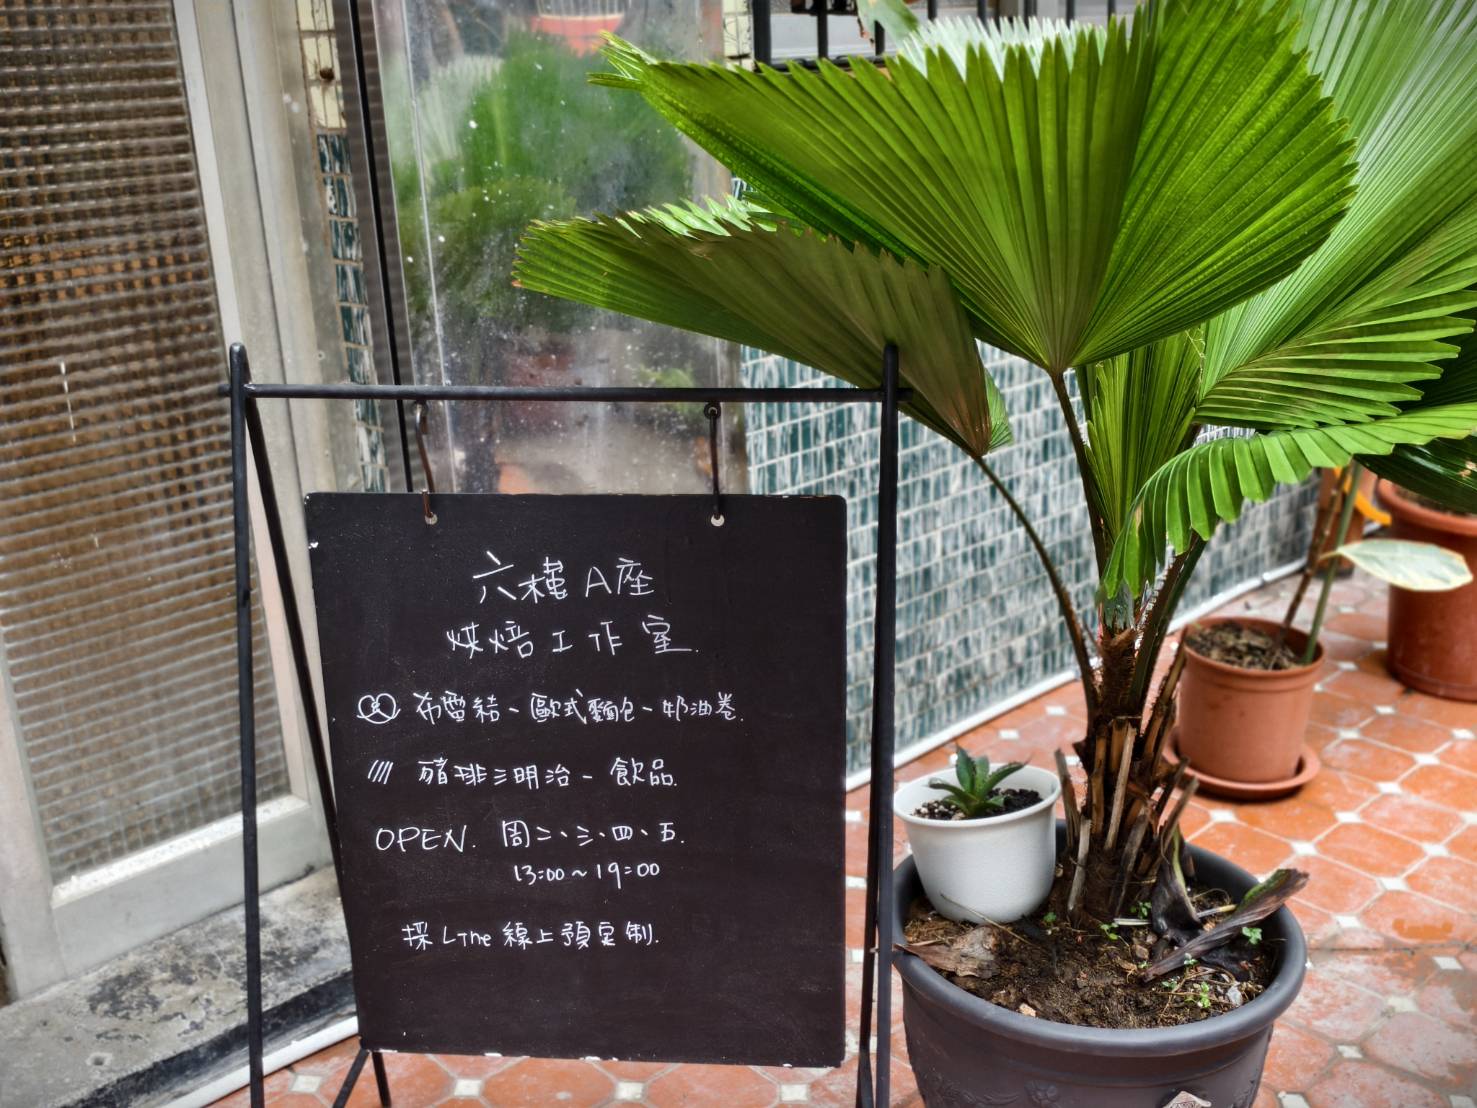 六樓A座
烘焙工作室.
布雷結、歐式麵包、奶油卷.
豬排三明治、飲品.
OPEN. 周二、三、四、五.
13:00~19:00
採Line線上預定制.